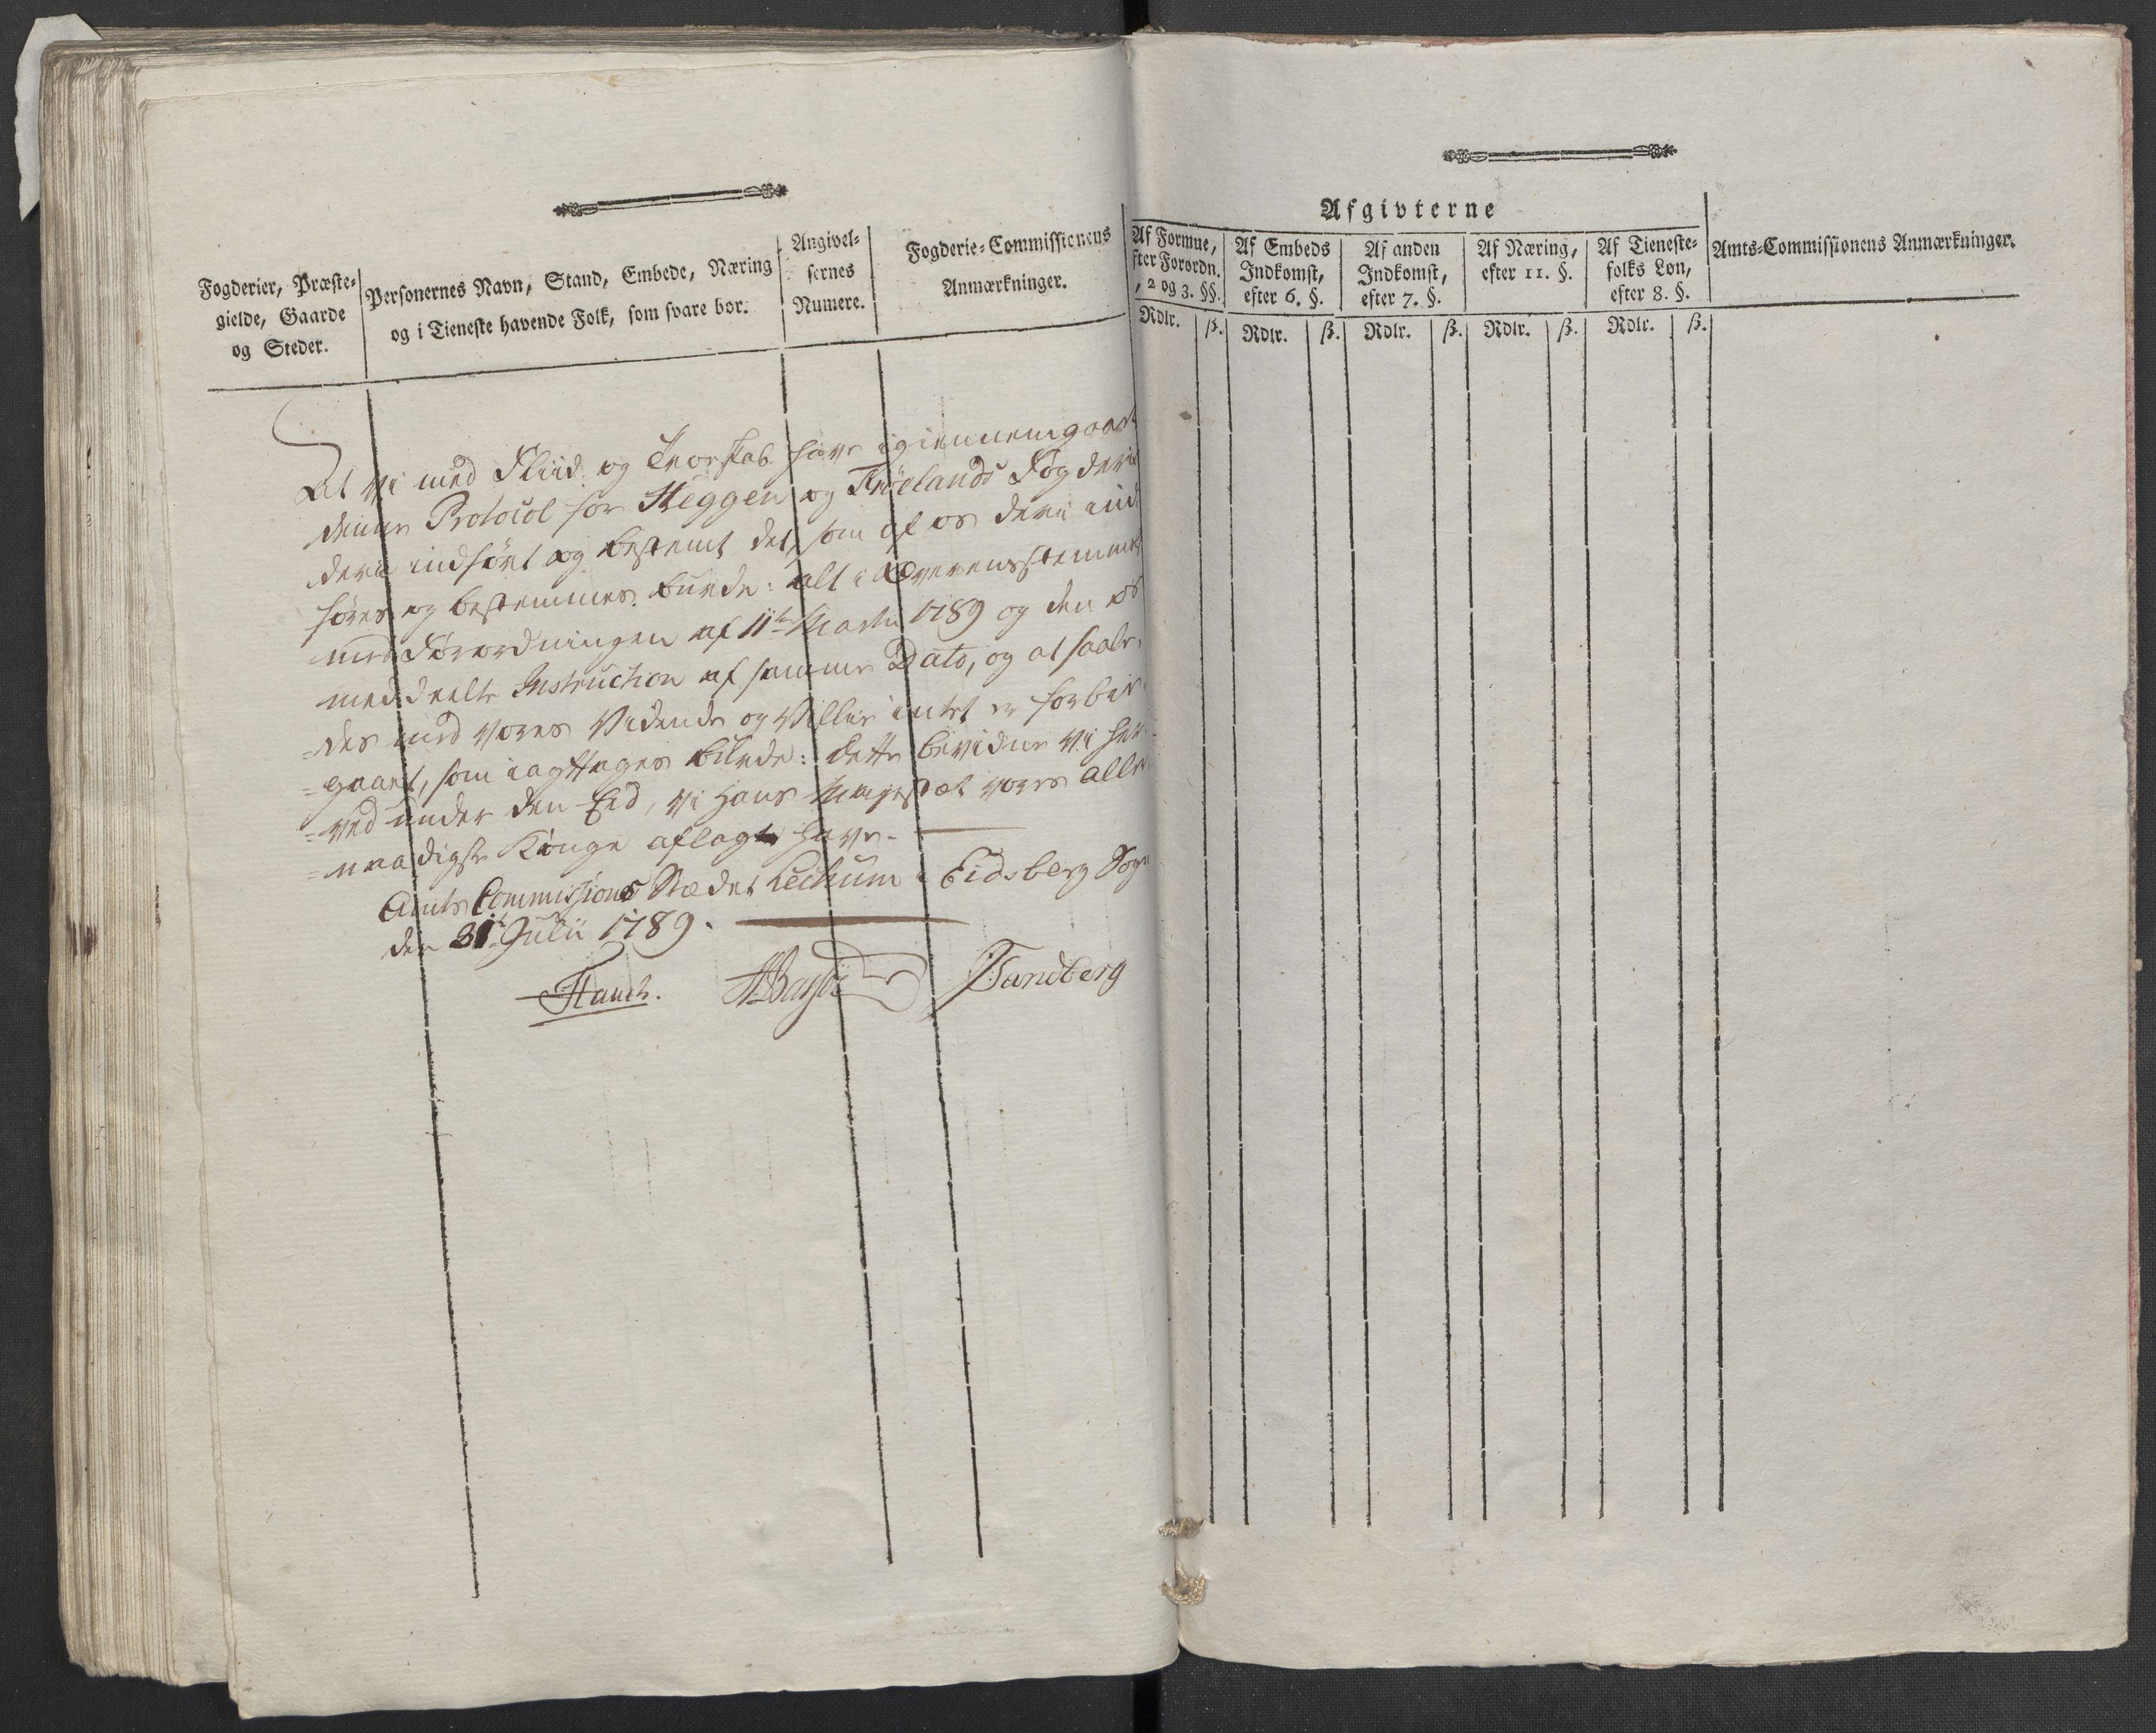 Fogderier, Præste-
gielde, Gaarde
og Steder.
Personernes Navn, Stand, Embede, Næring
og i Tieneste havende Folk, som svare bør.
Angivel-
sernes
Numere.
Fogderie-Commissionens
Anmærkninger.
At vi med Fliid og Troeskab have igiennemgaaet
denne Protocol for Heggen og Frölands Fogderie
derii indført og bestemt det, som af os derii ind
føres og bestemmes burde: alt i Overensstemmelse
med Forordningen af 11te Martii 1789 og den os
meddeelte Instruction af samme Dato, og at saale-
-des med vores Vidende og Villie intet er forbie-
-gaaet, som iagttages burde: dette bevidne vi her-
-ved under den Eed, vi Hans Majestæt vores Aller-
-naadigste Konge aflagt have.
Amts Commissions Stædet Lechum i Eidsberg Sogn
den 31te Julii 1789.
Hauch. Sandberg
Afgivterne
Af Formue,
fter Forordn.
, 2 og 3. §§.
Af Embeds
Indkomst,
efter 6. §.
Af anden
Indkomst,
efter 7. §.
Af Næring,
efter 11. §.
Af Tieneste-
folks Løn,
efter 8. §.
Amts-Commissionens Anmærkninger.
Rdlr. ß. Rdlr. ß. Rdlr. ß. Rdlr. ß. Rdlr. ß.